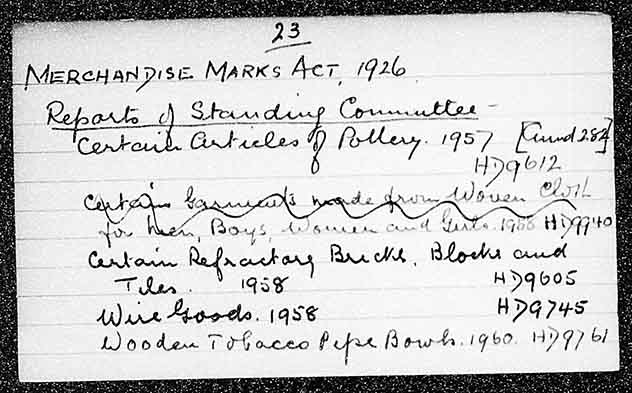 23
MERCHANDISE MARKS ACT, 1926
Reports of Standing Committee -
Certain articles of Pottery. 1957 [Cmnd 282]
HD9612
Certain Garments made from Woven Cloth
for Men, Boys, Women and Girls. 1958 HD9940
Certain Refractory Bricks, Blocks and
Tiles. 1958 HD9605
Wire Goods. 1958 HD9745
Wooden Tobacco Pipe Bowls. 1960. HD9761